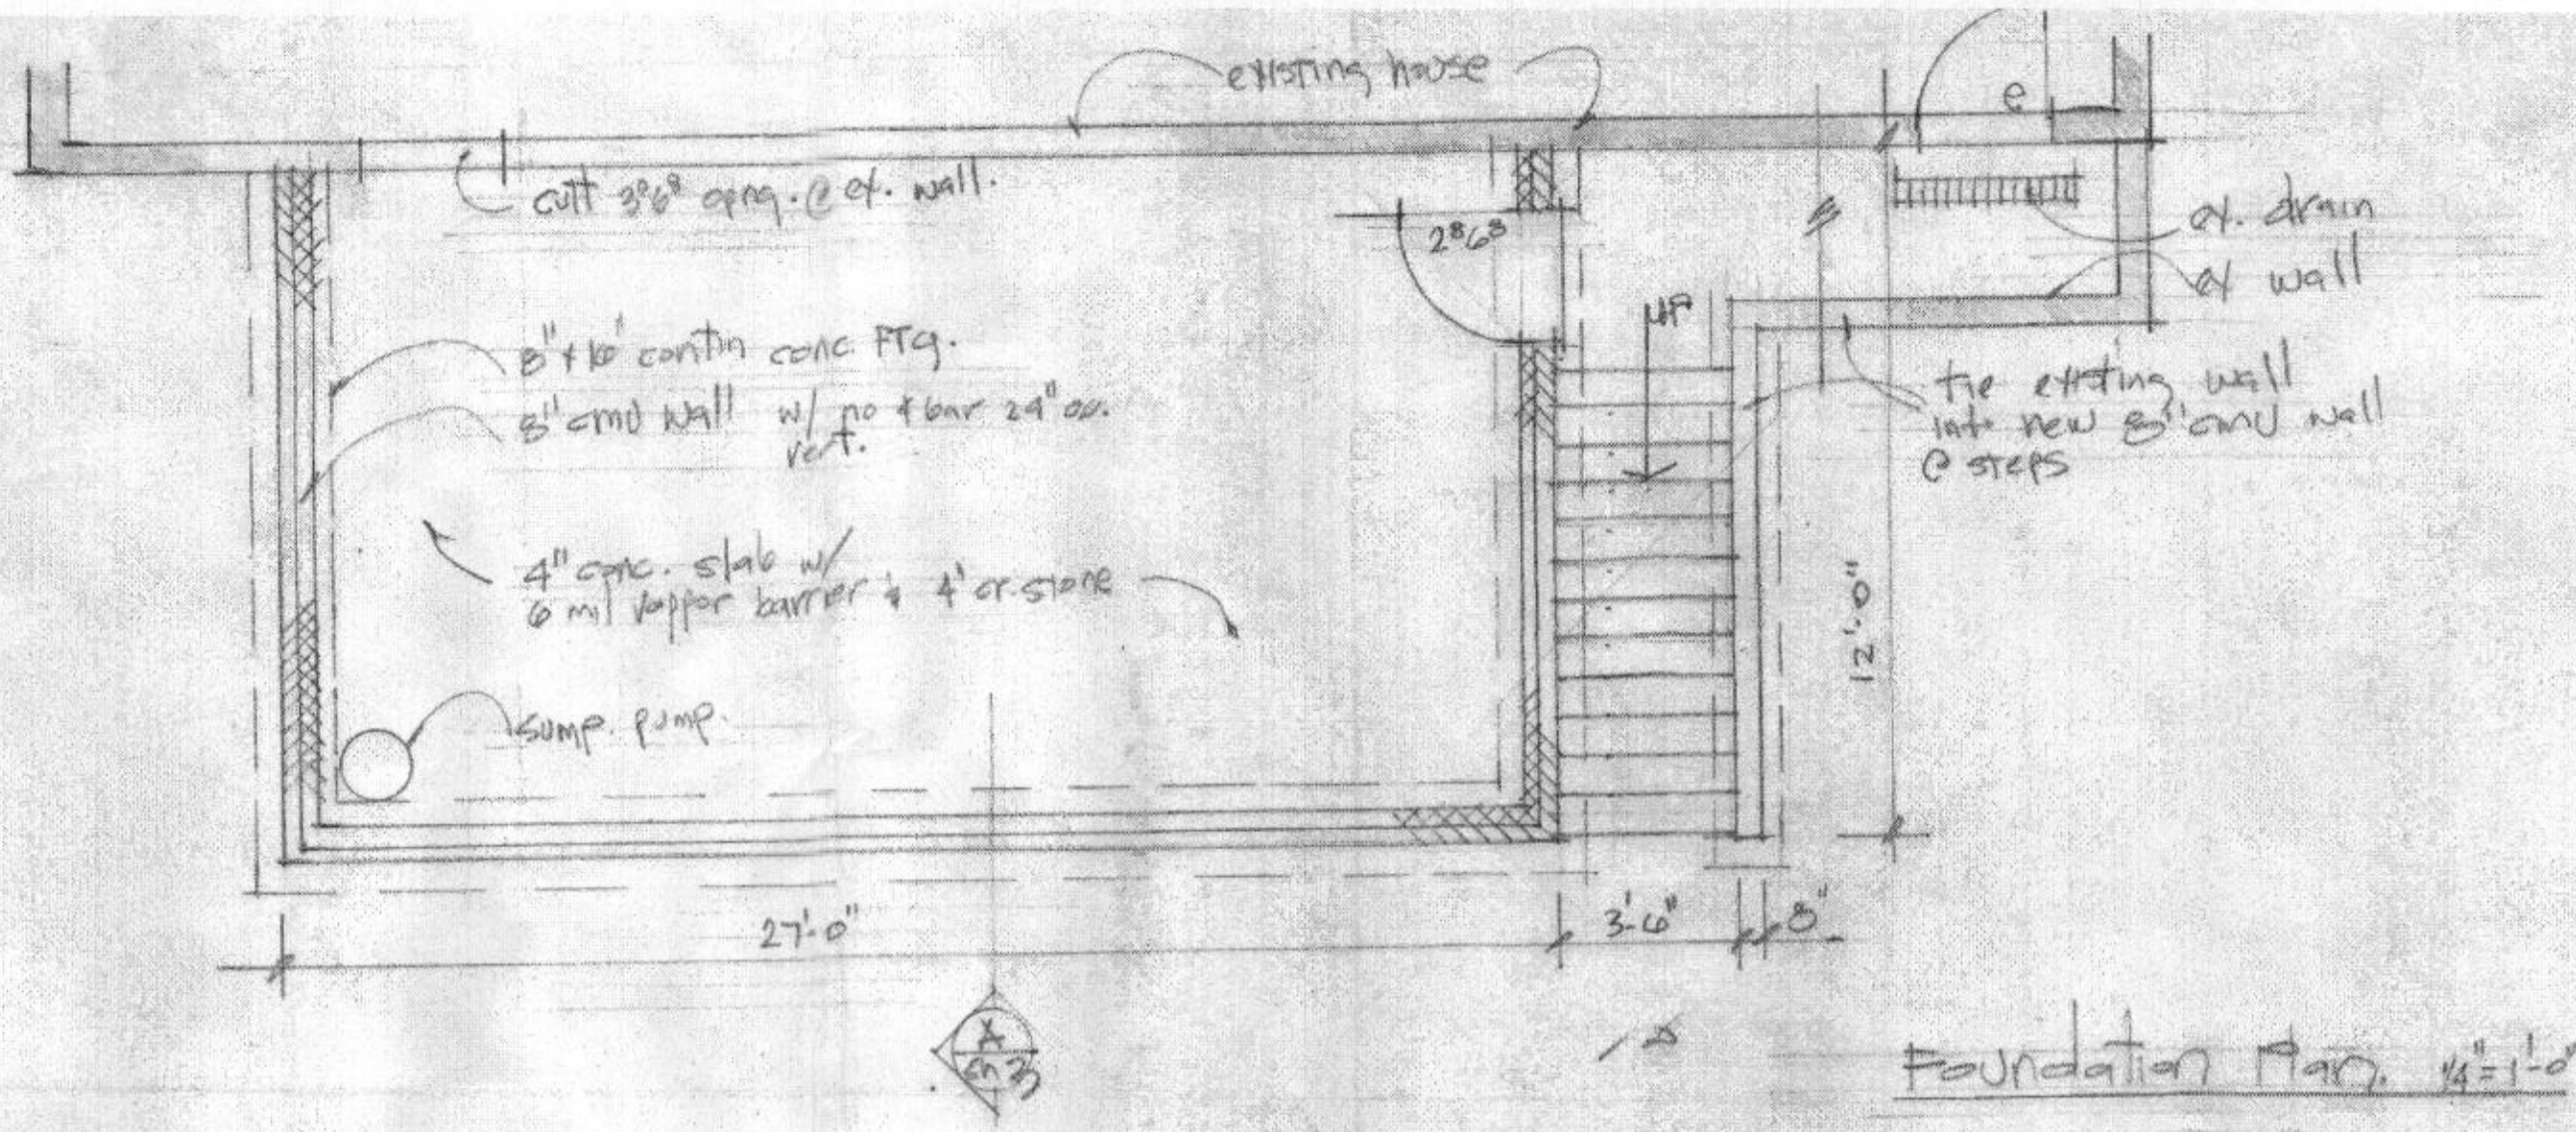 existing house
e
cutt 3⁰6⁸ opng. @ ex. wall.
2⁸6⁸
ex. drain
ex wall
UP
8" x 16" contin conc. FTG.
8" cmu wall w/ no 4 bar 24" oc.
vert.
tie existing wall
into new 8" cmu wall
@ steps
4" conc. slab w/
6 mil vappor barrier & 4" cr. stone
12'-0"
sump. pump.
27'-0"
3'-6"
8"
A
Sh 3
Foundation Plan. 1/4"=1'-0"